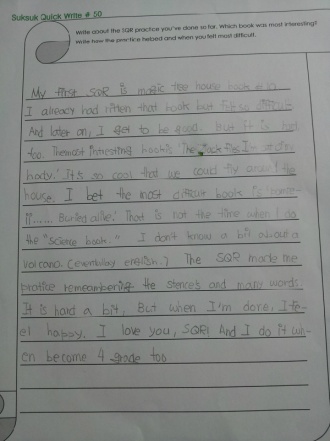 Suksuk Quick Write # 50
Write about the SQR practice you've done so far. Which book was most interesting?
Write how the practice helped and when you felt most difficult.
My first SQR is magic tee house book
I already had ritten that book but felt so difficult
And later on, I get to be good. But it is hard
too. The most intresting book is 'The
body.' It's so cool that we could fly around the
house. I bet the most difficult books is
Buried alive.' That is not the time when I do
the "Science book." I don't know a bit about a
volcano. english.) The SQR made me
protice remeambering the stences and many words.
It is hard a bit, But when I'm done, I fe-
el happy. I love you, SQR! And I do it wh-
en become 4 grade too